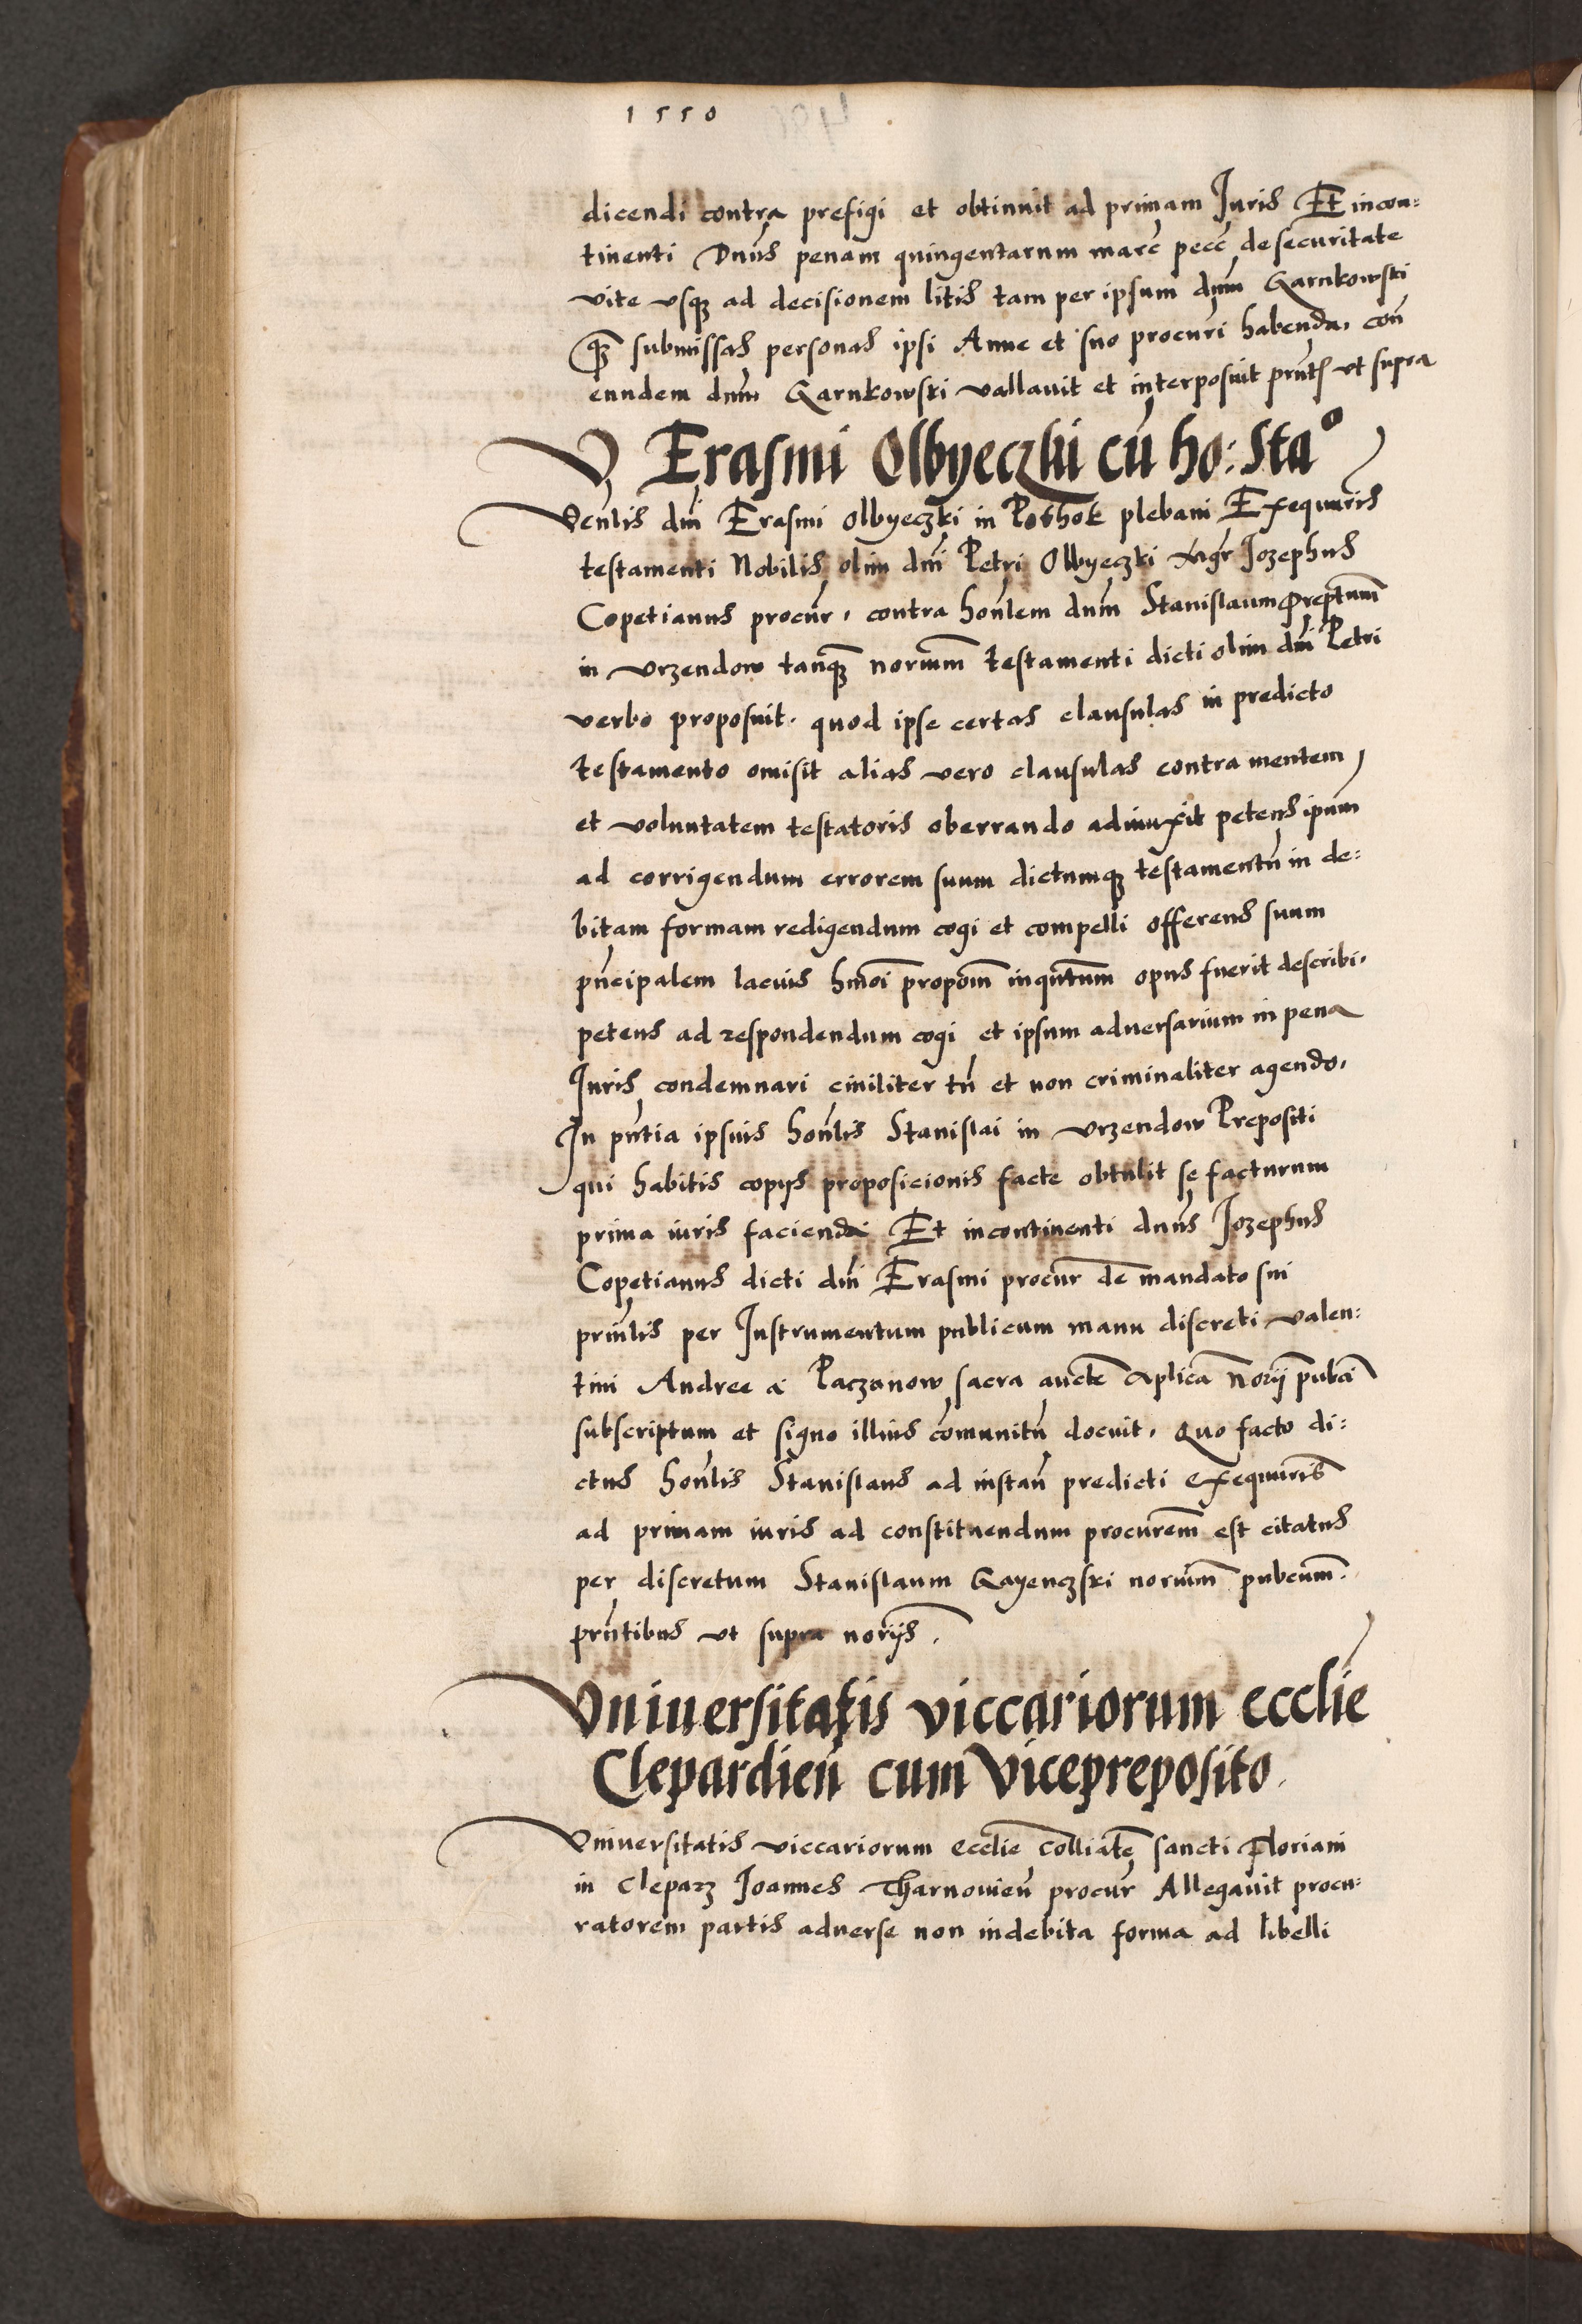 1550
dicendi contra prefigi et obtinuit ad primam Juris Et incon:
tinenti Dnus penam quingentarum marc pecc de securitate
vite usq ad decisionem litis tam per ipsum dnm Garnkowski
q submissas personas ipsi Anne et suo procuri habenda, con
eundem dnm Garnkowski vallavit et interposuit prntis ut supra
V Erasmi Olbyeczki cū ho: Stao
Venlis dni Erasmi Olbyeczki in Pothok plebani Exequuris
testamenti Nobilis olim dni Petri Olbyeczki Mgr Jozephus
Copetianus procur, contra honlem dnm Stanislaum Preptum
in Urzendow tanq noriumm testamenti dicti olim dni Petri
verbo proposuit. quod ipse certas clausulas in predicto
testamento omisit alias vero clausulas contra mentem
et voluntatem testatoris oberrando adiunxit petens ipum
ad corrigendum errorem suum dictumq testamentū in de:
bitam formam redigendum cogi et compelli offerens suum
pncipalem lacius hmoi propom inqntum opus fuerit describi,
petens ad respondendum cogi et ipsum adversarium in pena
Juris condemnari civiliter tn et non criminaliter agendo,
In pntia ipsius honlis Stanislai in Urzendow Prepositi
qui habitis copijs proposicionis facte obtulit se facturum
prima iuris faciendi Et incontinenti dnus Jozephus
Copetianus dicti dni Erasmi procur de mandato sui
prinlis per Instrumentum publicum manu discreti Valen:
tini Andree a Paczanow sacra aucte aplica norij pubci
subscriptum et signo illius comunitū docuit, Quo facto di:
ctus honlis Stanislaus ad instan predicti exequuris
ad primam iuris ad constituendum procurem est citatus
per discretum Stanislaum Gayenczski noriumm pubcum.
prntibus ut supra norijs.
Universitatis viccariorum ecclie
Clepardien cum Vicepreposito.
Universitatis viccariorum ecclie colliate sancti Floriani
in Cleparz Joannes Tharnovien procur Allegavit procu:
ratorem partis adverse non indebita forma ad libelli